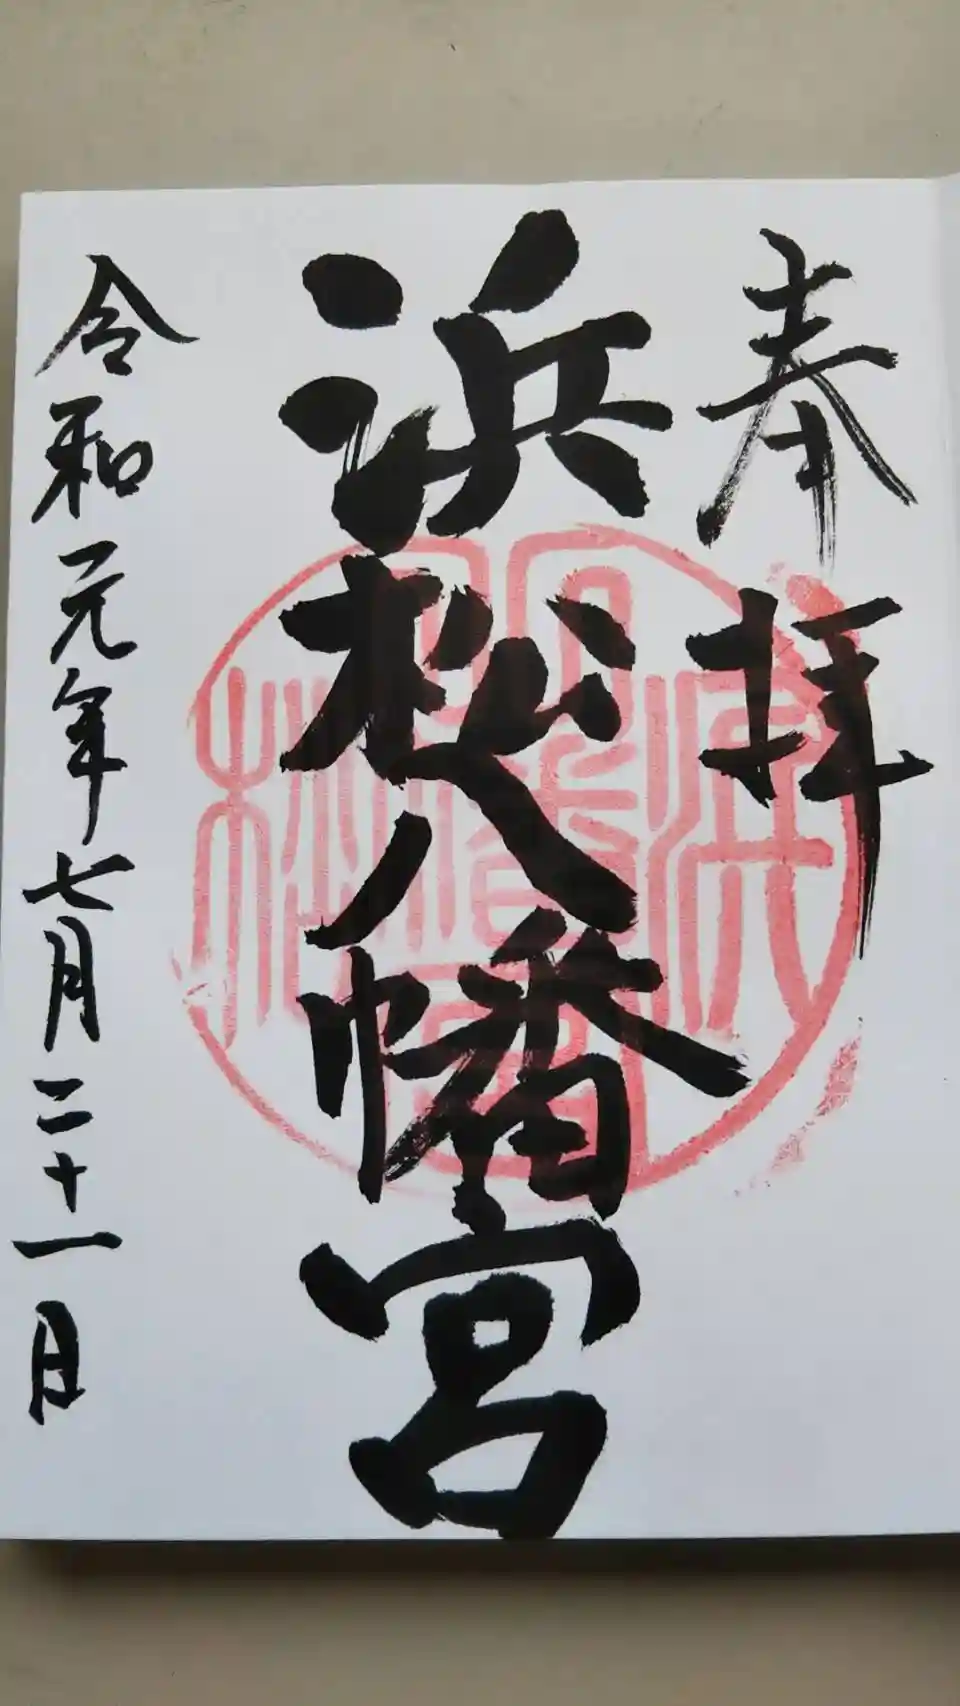 奉拝
浜松八幡宮
令和元年七月二十一日